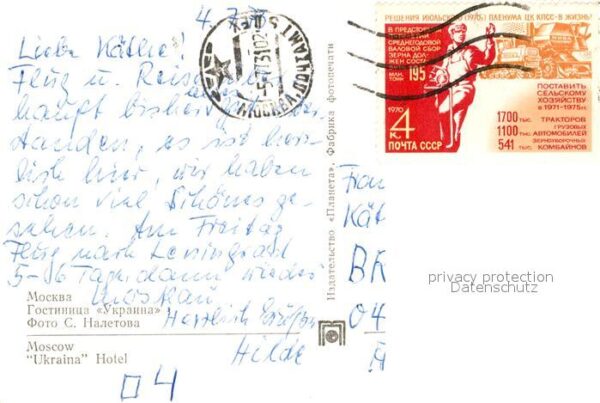 4.7.
Liebe Käthe!
Flug u. Reise
haupt bisher
standen, es ist herr-
lich hier, wir haben
schon viel Schönes ge-
sehen. Am Freitag
Flug nach Leningrad
5-6 Tage, dann wieder
Moskau
Herzlich Grüßen
Hilde
04
Москва
Гостиница «Украина»
Фото С. Налетова
Moscow
"Ukraina" Hotel
Издательство «Планета», Фабрика фотопечати
РЕШЕНИЯ ИЮЛЬСКОГО (1970г.) ПЛЕНУМА ЦК КПСС - В ЖИЗНЬ!
В ПРЕДСТОЯЩЕМ
ПЯТИЛЕТИИ
СРЕДНЕГОДОВОЙ
ВАЛОВОЙ СБОР
ЗЕРНА ДОЛ-
ЖЕН СОСТА-
195
МЛН.
ТОНН
1970
4 К.
ПОЧТА СССР
ПОСТАВИТЬ
СЕЛЬСКОМУ
ХОЗЯЙСТВУ
в 1971-1975гг.
1700 тыс. ТРАКТОРОВ
1100 тыс. ГРУЗОВЫХ АВТОМОБИЛЕЙ
541 тыс. ЗЕРНОУБОРОЧНЫХ КОМБАЙНОВ
Frau
Kät
BK
04
privacy protection
Datenschutz